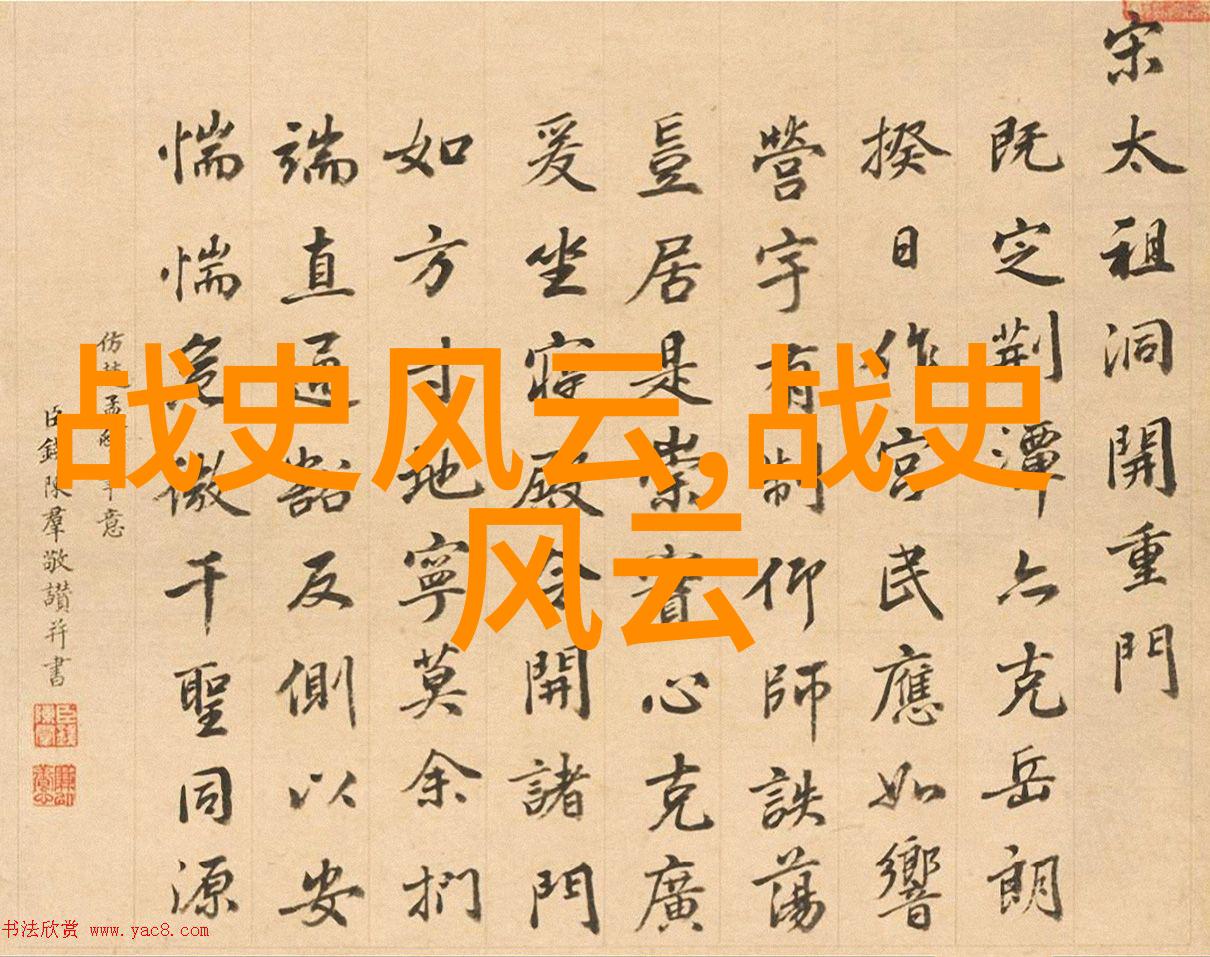 宋太祖洞開重門
既定荆潭亦克岳朗
揆日作宮民應如響
營宇有制仰師詄蕩
豈居是崇實心克廣
爰坐寢殿令開諸門
如方寸地寧莫余捫
端直通豁反側以安
惴惴危微千聖同源
仿趙孟頫筆意
臣錢陳羣敬讃并書
战史风云,战史
风云
书法欣赏 www.yac8.com